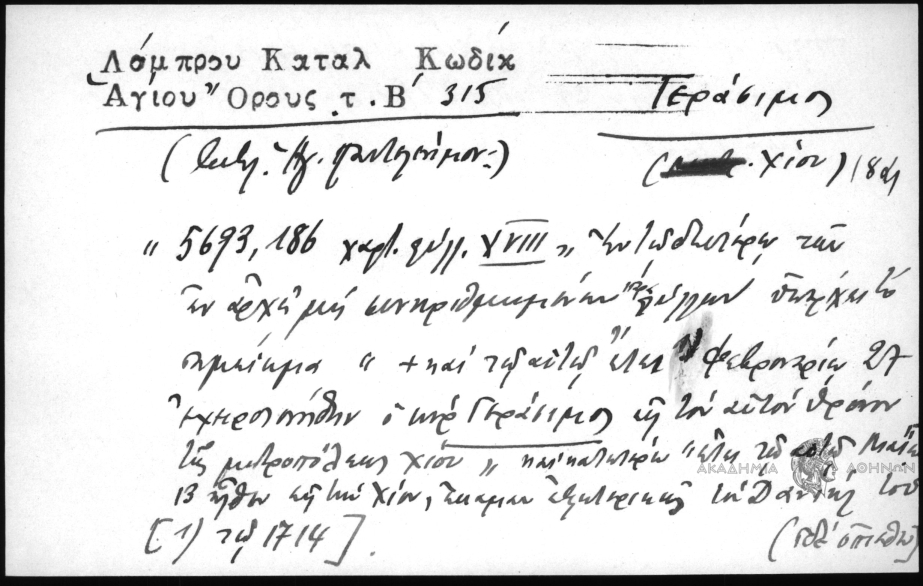 Λάμπρου Καταλ Κωδίκ
Ἁγίου Ὄρους τ. Β' 315
Γεράσιμος
( Ἁγ. Παντελεήμον.)
( . Χίου) 18
" 5693, 186 χαρτ. φύλλ. XVIII " Ἐν τῷ δευτέρῳ τῶν
ἐν ἀρχῇ μὴ συνηριθμημένων φύλλων ὑπάρχει τὸ
σημείωμα " + καὶ τῷ αὐτῷ ἔτει Φεβρουαρίῳ 27
ἐχειροτονήθην ὁ κὺρ Γεράσιμος εἰς τὸν αὐτὸν θρόνον
τῆς μητροπόλεως Χίου " καὶ κατωτέρω " ἔτει τῷ αὐτῷ Μαΐῳ
13 ἦλθον εἰς τὴν Χίον, τοῦ
[1) τῷ 1714].
(ἰδὲ ὄπισθεν)
ΑΚΑΔΗΜΙΑ ΑΘΗΝΩΝ